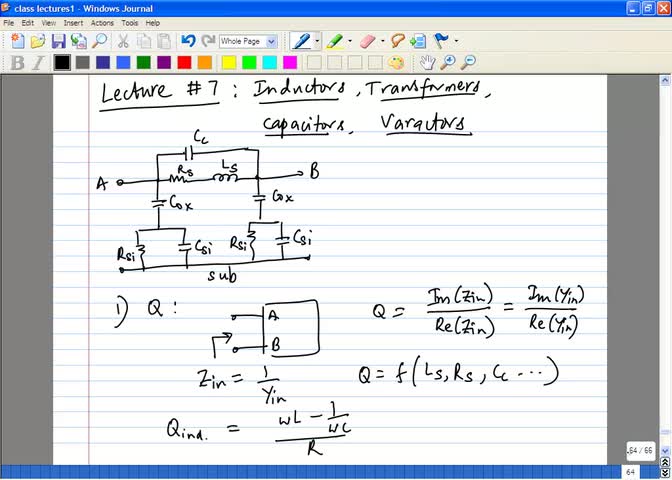 class lectures1 - Windows Journal
File Edit View Insert Actions Tools Help
Whole Page
B I
Lecture #7 : Inductors, Transformers,
capacitors, Varactors
Cc
A Rs Ls B
Cox Cox
Rsi Csi Rsi Csi
sub
1) Q :
A
B
Q = Im(Zin) / Re(Zin) = Im(Yin) / Re(Yin)
Zin = 1 / Yin
Q = f(Ls, Rs, Cc ...)
Qind. = (wL - 1/wC) / R
64 / 66
64